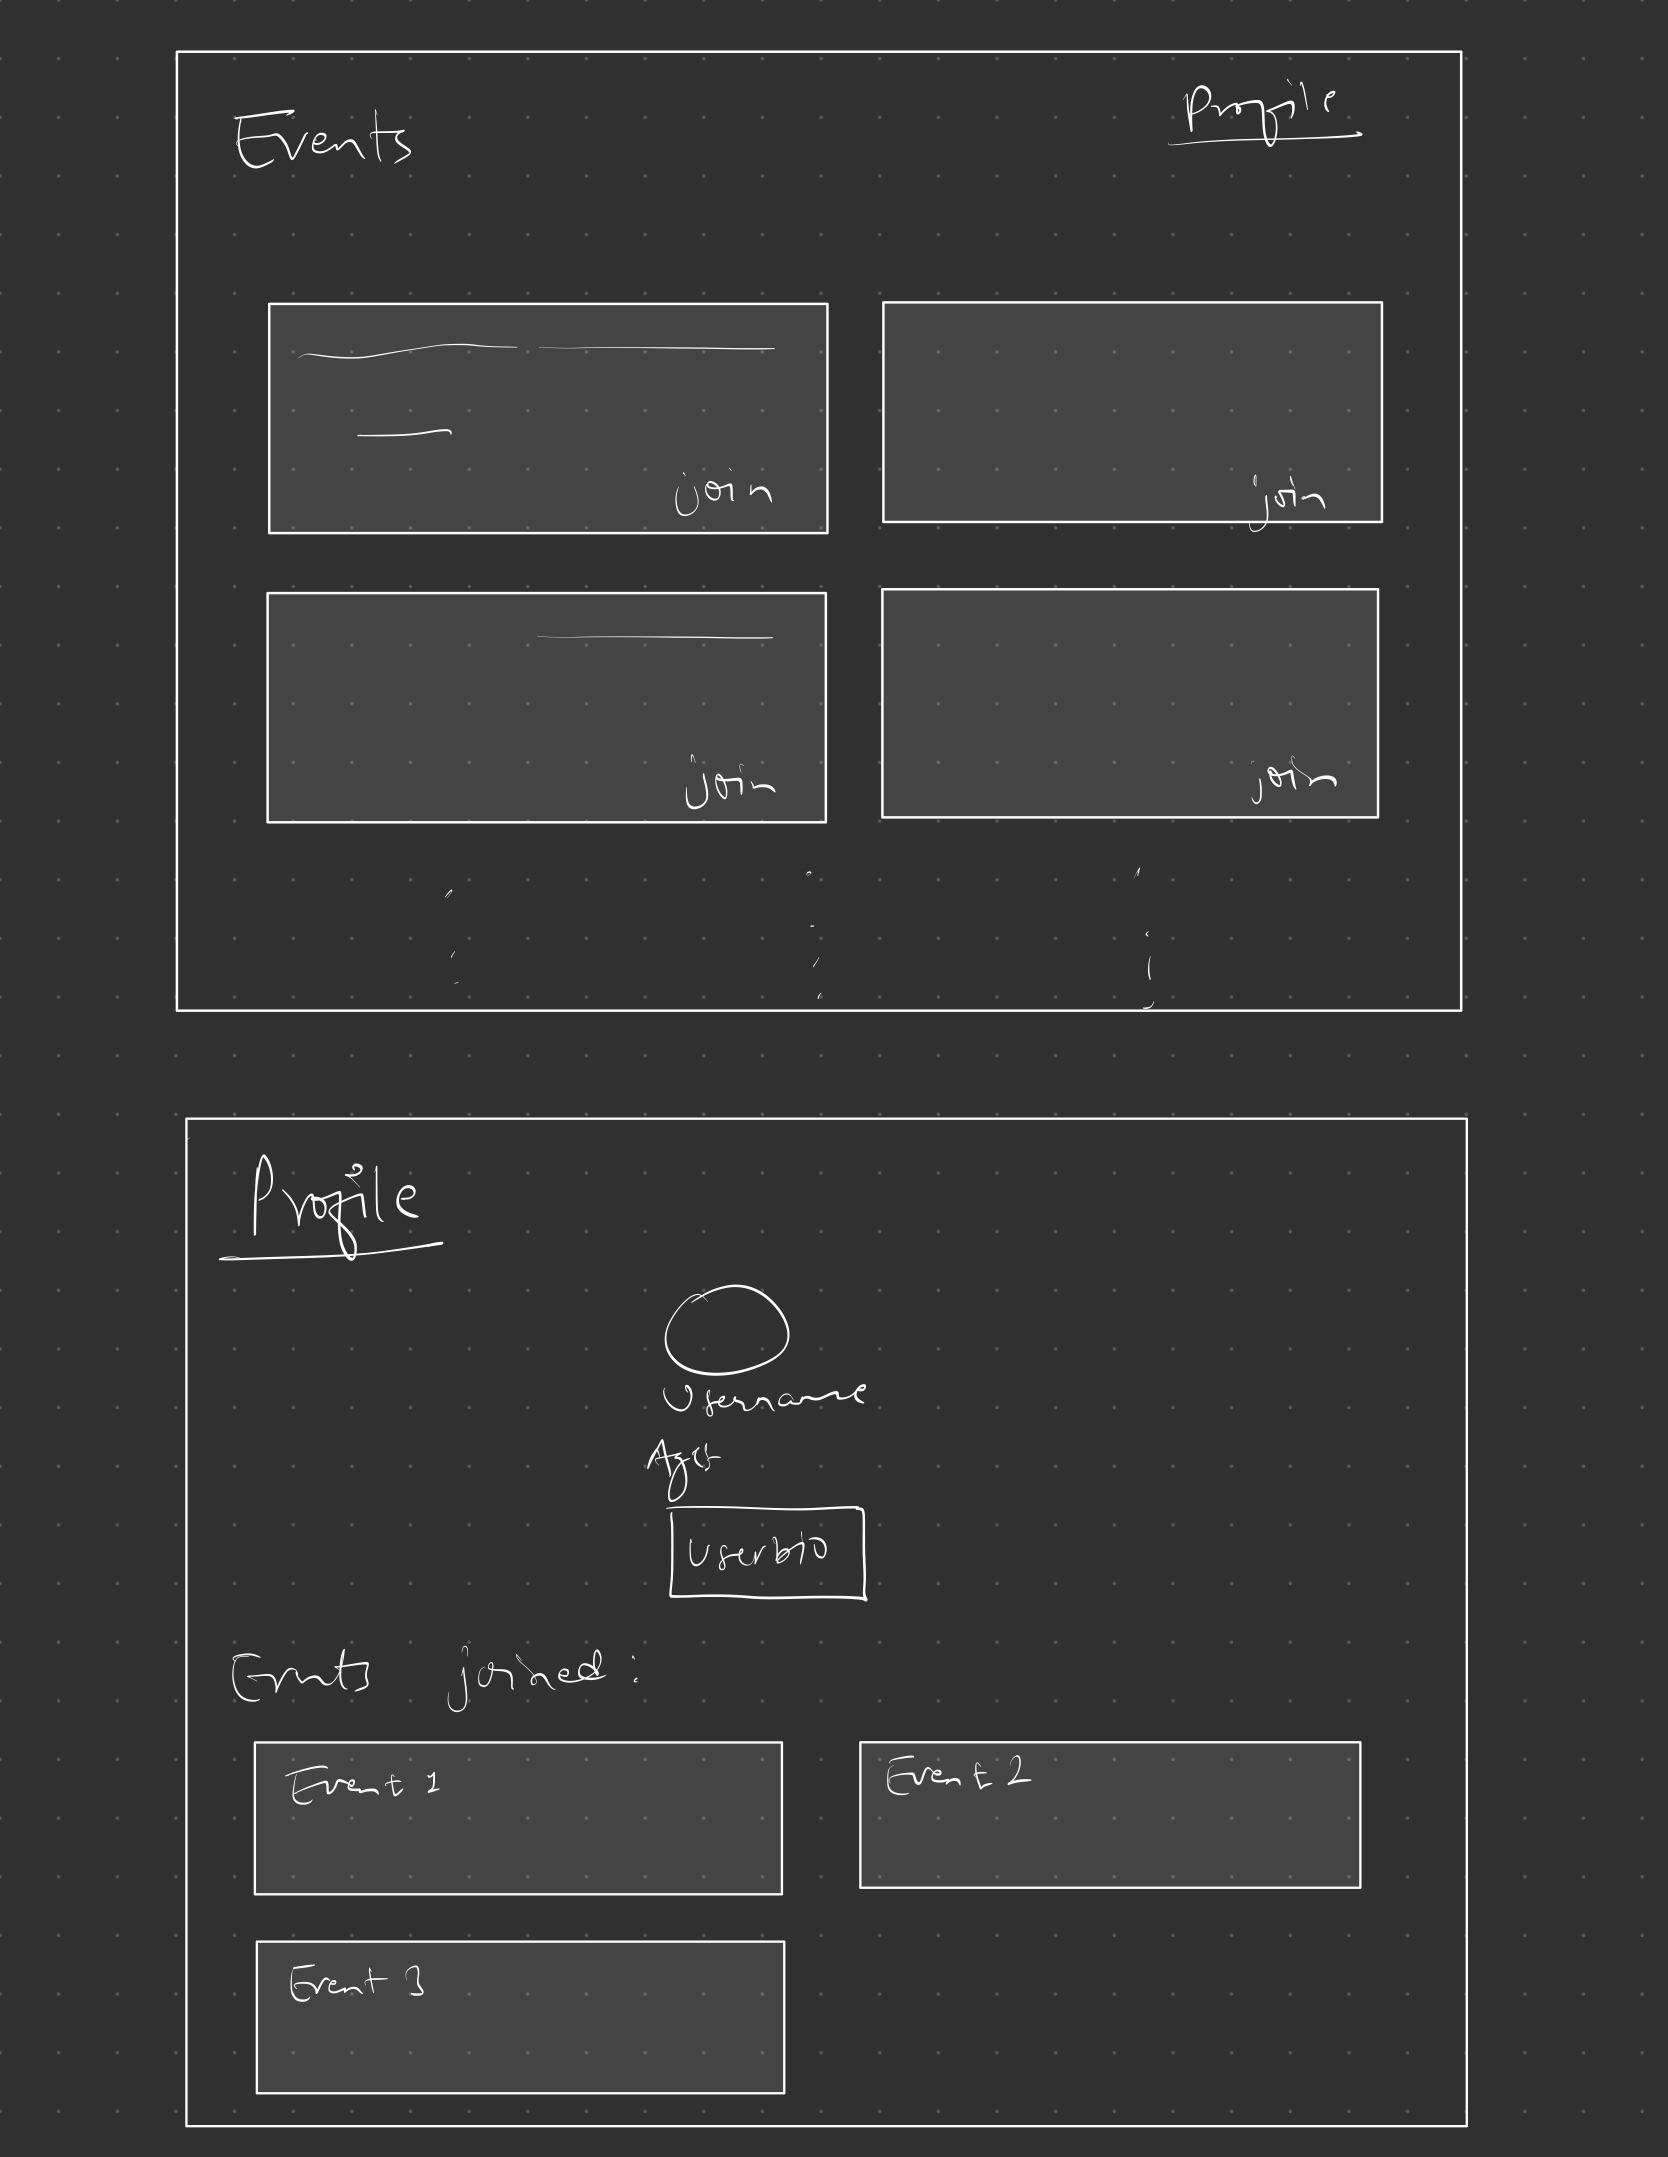 Events
Profile
join
join
join
join
Profile
Username
Userbio
Events joined:
Event 1
Event 2
Event 3